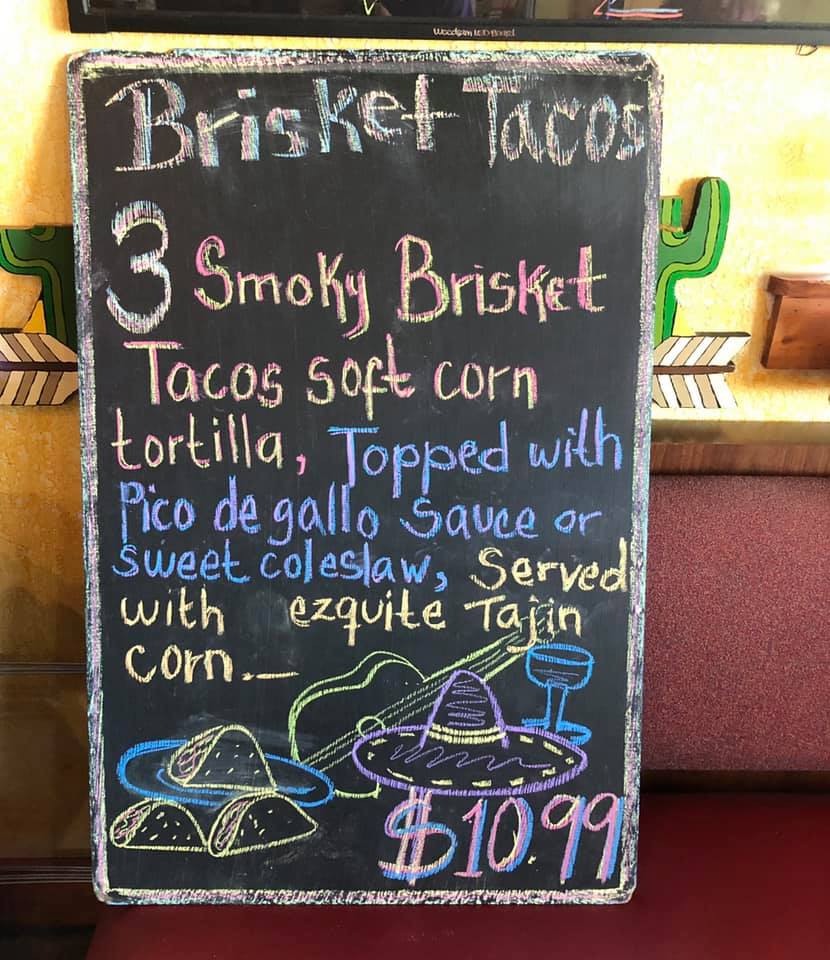 Woodsam LED Board
Brisket Tacos
3 Smoky Brisket
Tacos soft corn
tortilla, Topped with
Pico de gallo sauce or
sweet coleslaw, Served
with ezquite Tajin
corn.
$10.99